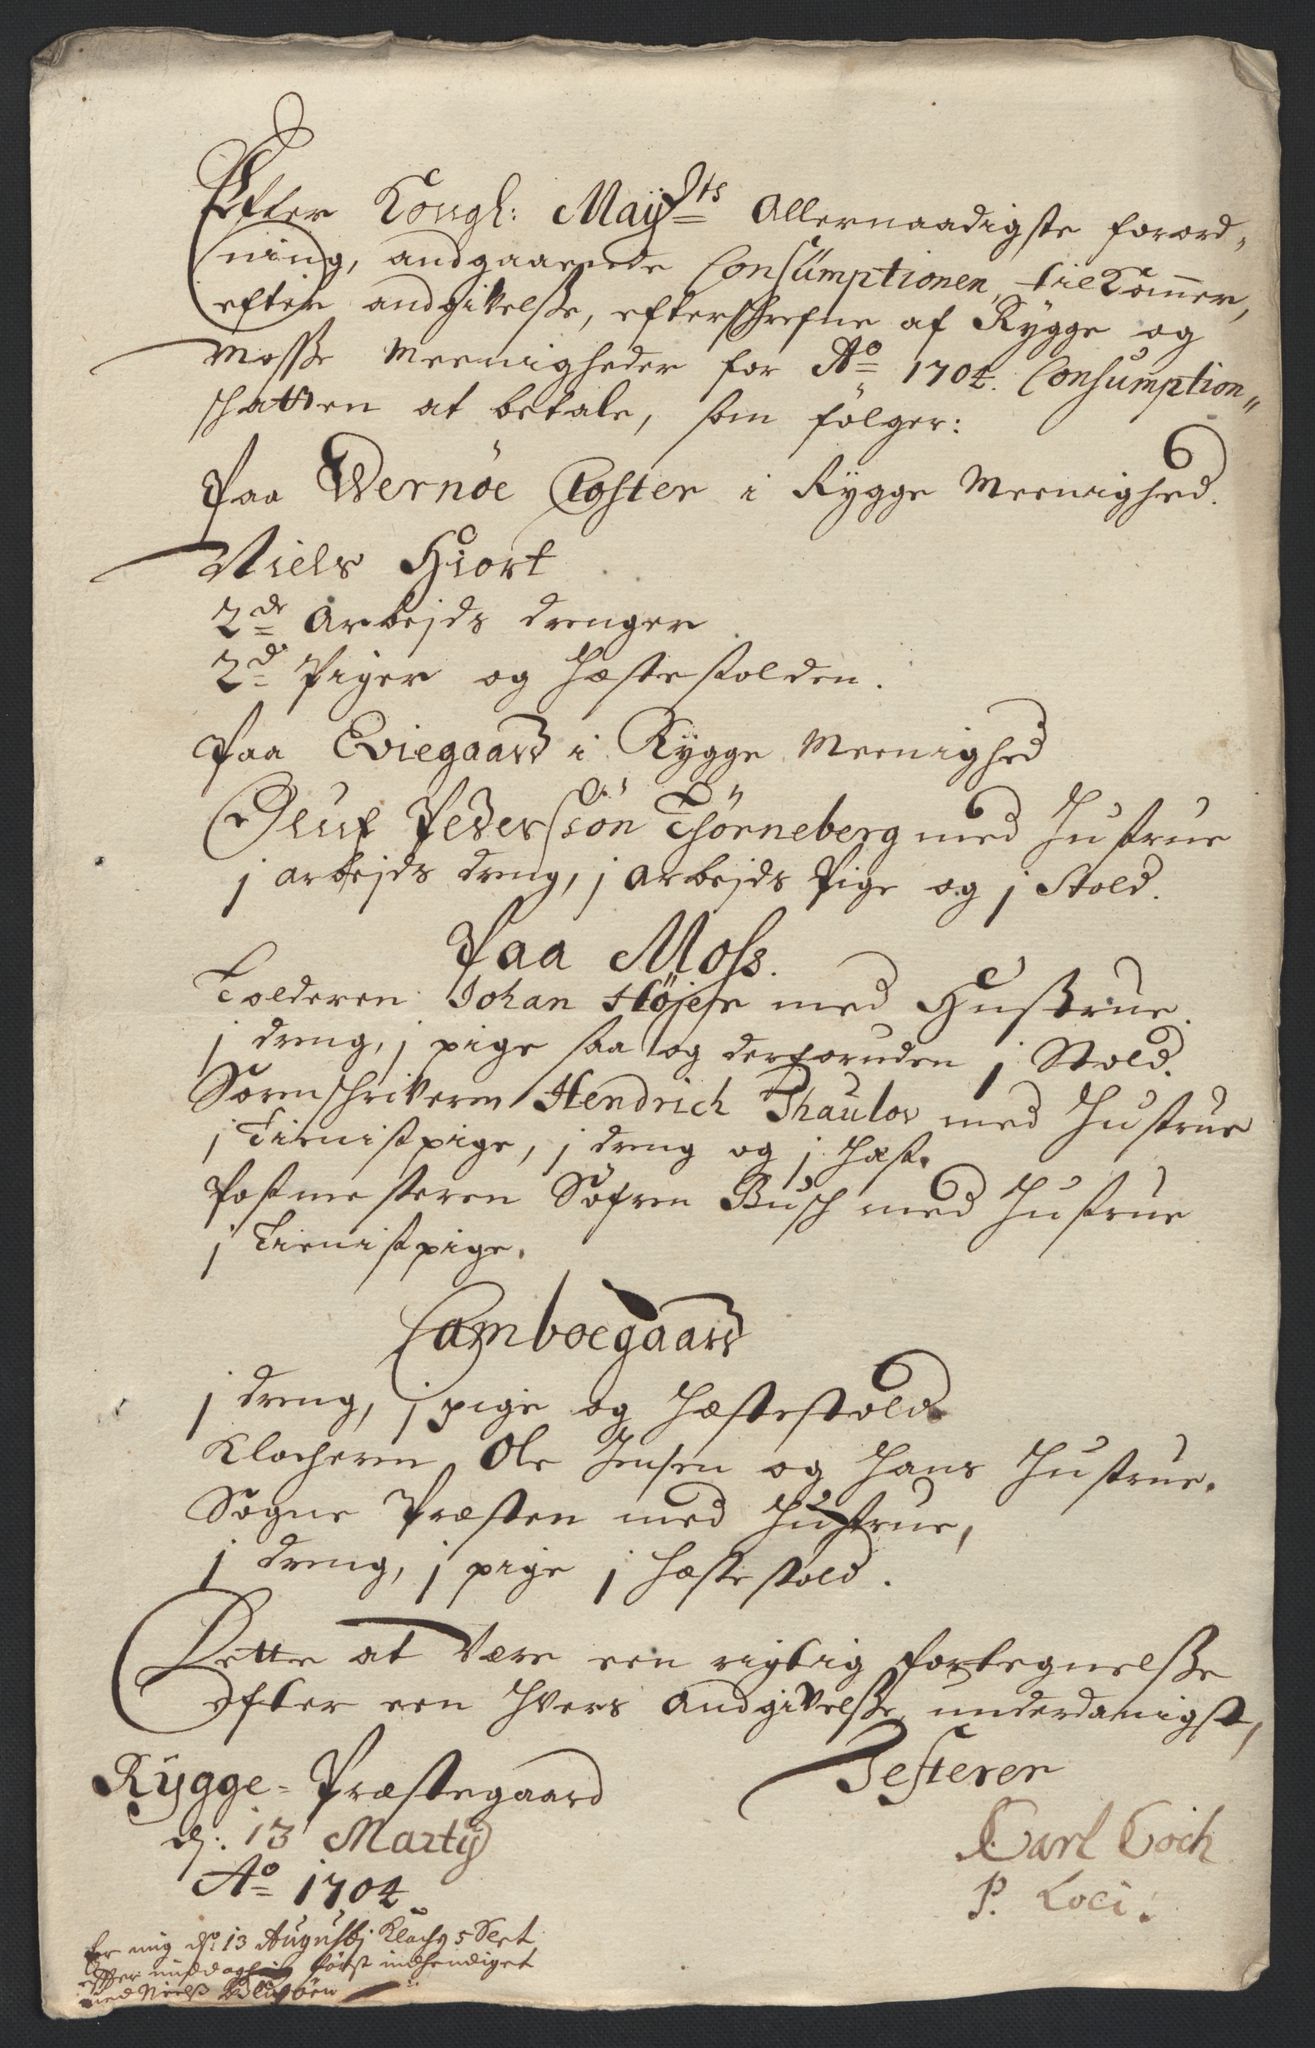 Efter Kongl: Mayᵗˢ Allernaadigste forord-
ning, andgaaende Consümptionen, tilkommer,
efter andgivelsse, efterschrefne af Rygge og
Mosse Meenigheder for Aº 1704. Consumption-
schatten at betale, som følger:
Paa Wernöe Closter i Rygge Meenighed.
Niels Hiort
2de Arbejds drenger
2de Piger og Hæste holden.
Paa Eviegaard i Rygge Meenighed
Oluf Pederssön Thörneberg med Hustrue
j arbejds dreng, j arbejds Pige og j Stold.
Paa Moss.
Tolderen Johan Höjer med Hustrue.
j dreng, j pige saa og derforuden j Stold.
Sorenschriveren Hendrich Thaulov med Hustrue
j Tienist pige, j dreng og j Hæst.
Postmesteren Söfren Büsch med Hustrue
j Tienist pige.
Camboegaard
j dreng, j pige og Hæstestold
Klocheren Ole Jensen og Hans Hustrue.
Sogne Præsten med Hustrue,
j dreng, j pige j Hæste stold.
Dette at være een rigtig fortegnelsse
efter een hvers Andgivelsse, underdanigst,
Testerer
Rÿgge-Præstegaard
d: 13 Martij
Aº 1704
Carl Coch
P. Loci.
Er mig d: 13 Augustj Kloch 5 Slet
effter middag først indhendiget
med Niels